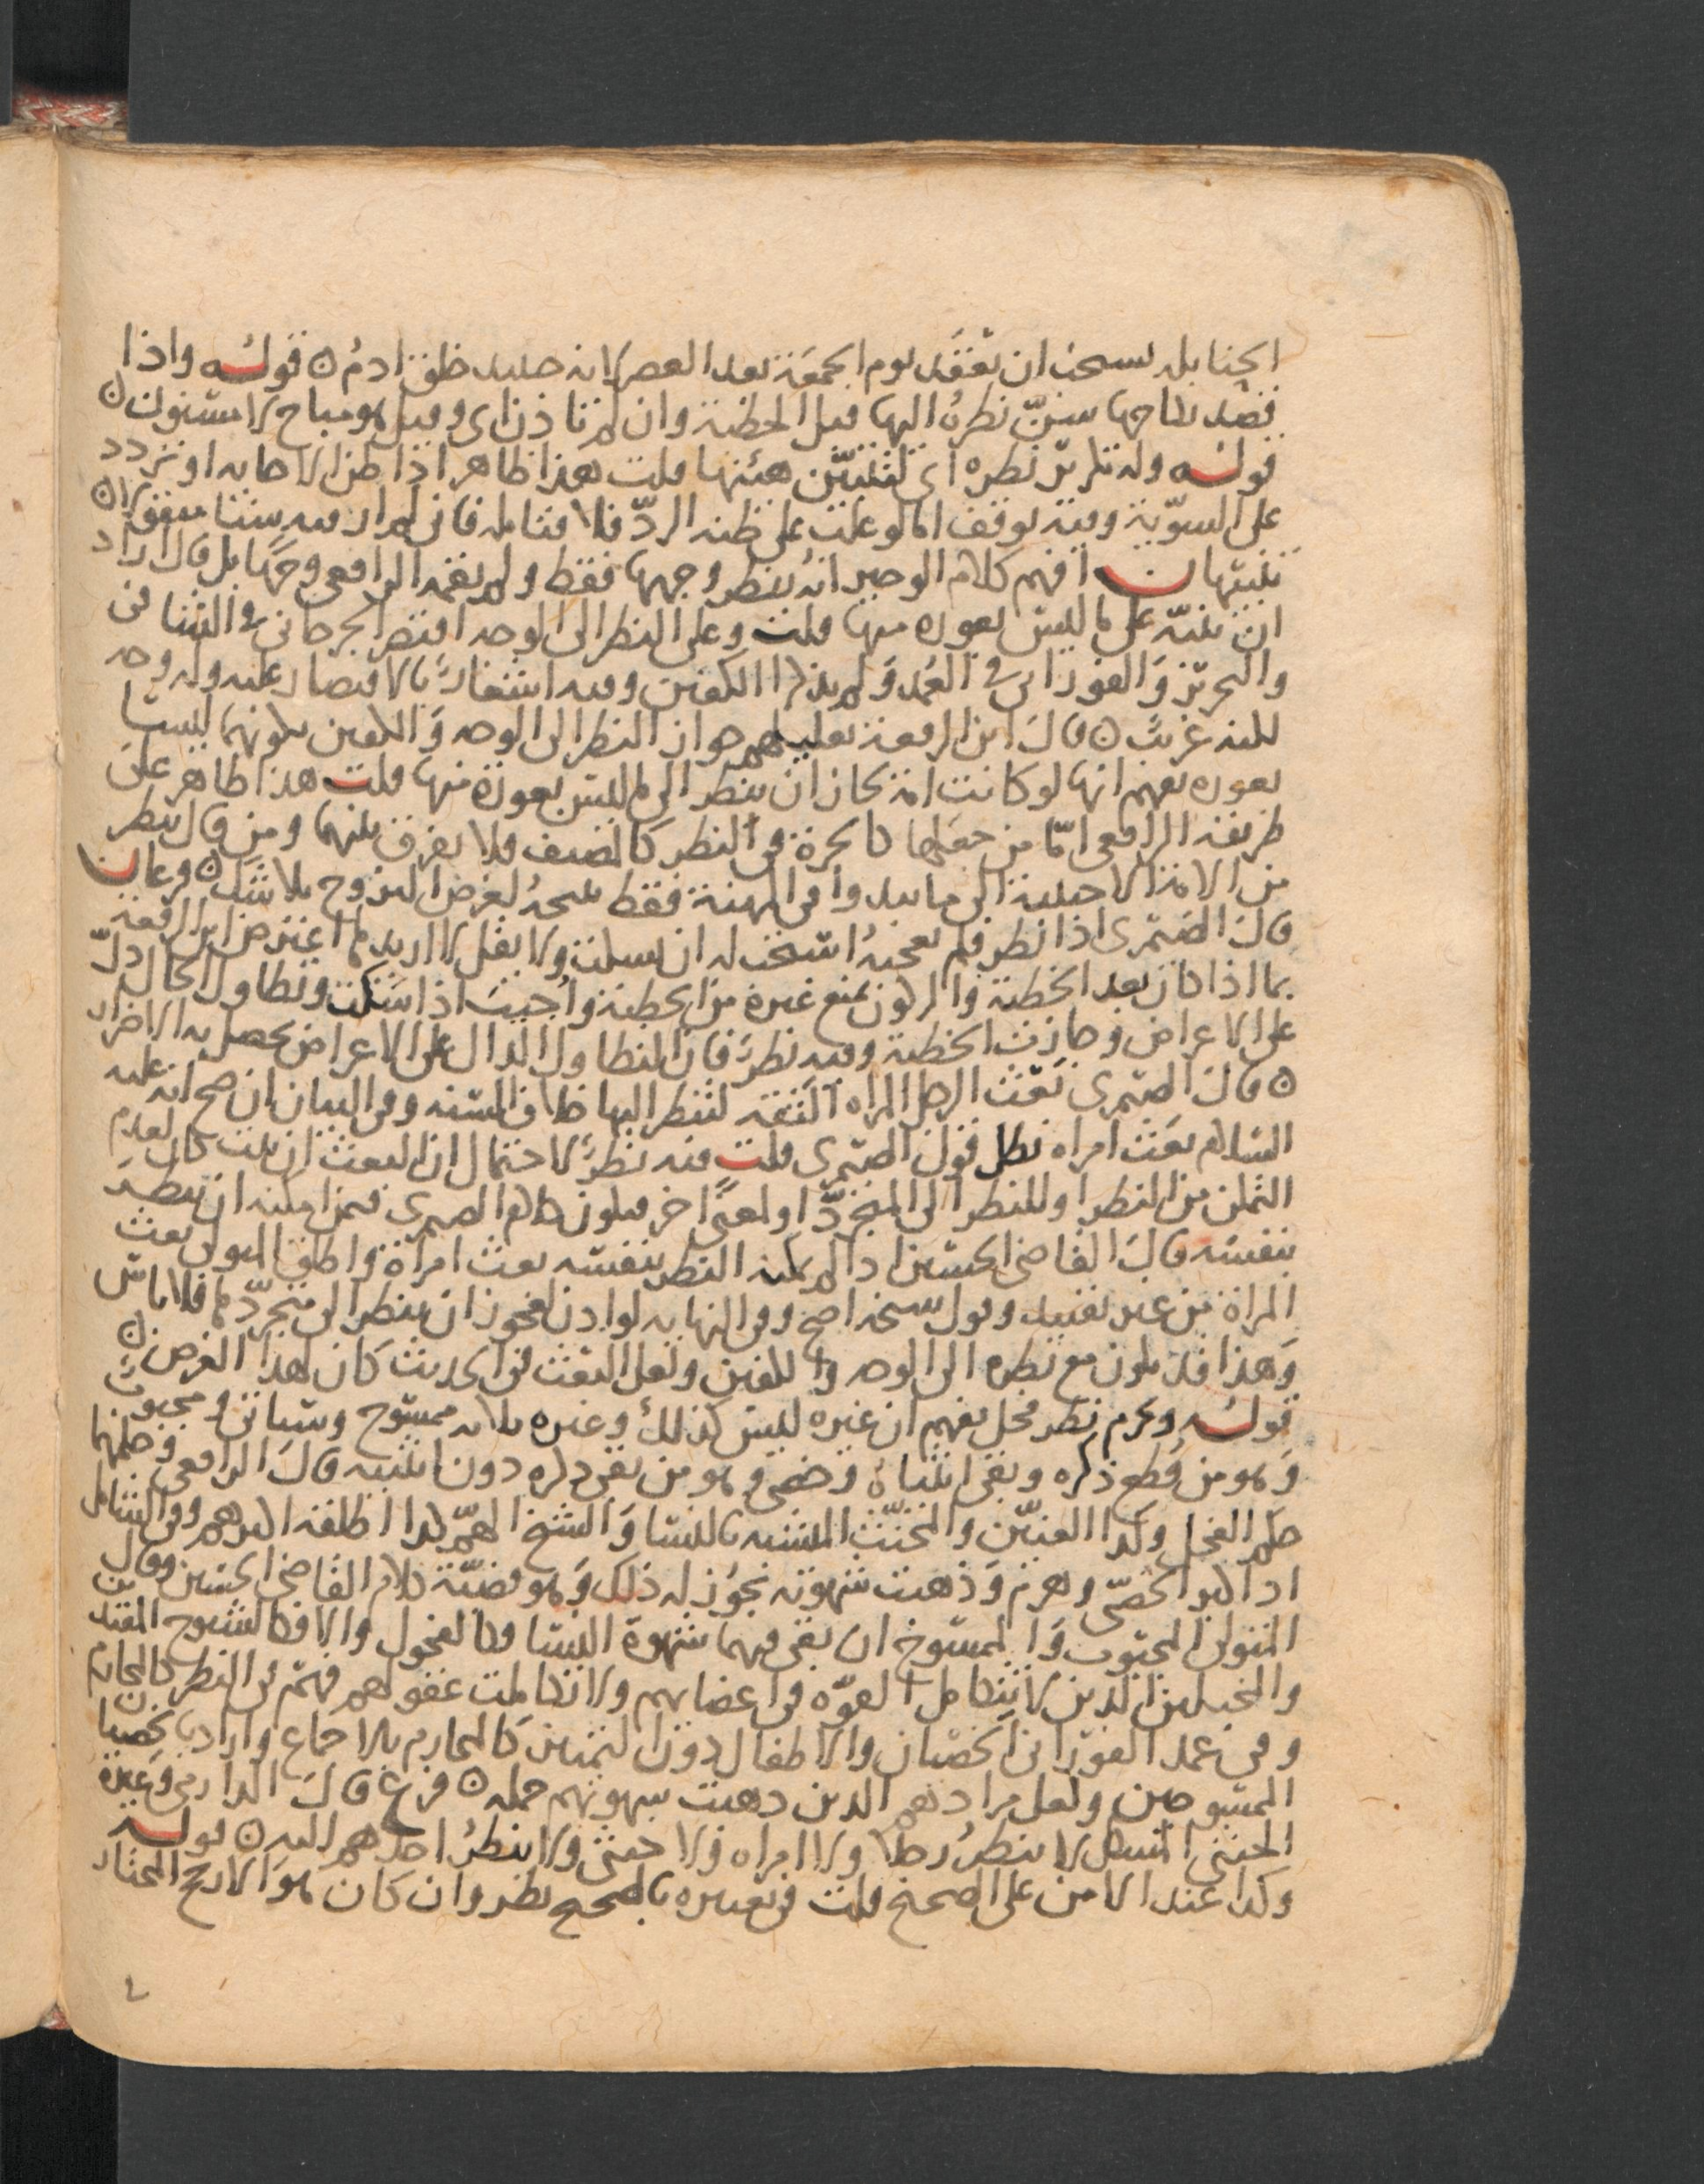 الحنابلة يستحب ان يعقد يوم الجمعة بعد العصر لانه حينئذ خلق ادم ٥ قوله واذا
قصد نكاحها سن نظره اليها قبل الخطبة وان لم تاذن اى وقيل هو مباح لا مسنون ٥
قوله وله تكرير نظره اى ليتبين هيئتها قلت هذا ظاهر اذا ظن الاجابة او تردد
على السوية وفيه توقف اما لو غلب على ظنه الرد فلا فتامله فانى لم ار فيه شيئا
تنبيهان افهم كلام الوجيز انه ينظر وجهها فقط ولم يقمه الرافعى وجها بل قال اراد
ان ينبه على ما ليس بعورة منها قلت وعلى النظر الى الوجه اقتصر الجرجانى فى الشافى
والتحرير والفورانى فى العمد ولم يذكرا الكفين وفيه اشعار بالاقتصار عليه وله وجه
لكنه غريب ٥ قال ابن الرفعة تعليلهم جواز النظر الى الوجه والكفين بكونهما ليستا
بعورة يفهم انها لو كانت امة لجاز ان ينظر الى ما ليس بعورة منها قلت هذا ظاهر على
طريقة الرافعى اما من جعلها كالحرة فى النظر كالمصنف فلا يفرق بينهما ومن قال ينظر
من الامة الاجنبية الى ما يبدوا فى المهنة فقط يبيحه لغرض التزوج بلا شك ٥ فرعان
قال الصيمرى اذا نظر فلم تعجبه استحب له ان يسكت ولا يقل لا اريدها اعترض ابن الرفعة
بما اذا كان بعد الخطبة والركون يمنع غيره من الخطبة واجيب اذا سكت وتطاول الحال دل
على الاعراض وجازت الخطبة وفيه نظر فان التطاول الدال على الاعراض يحصل به الاضرار
٥ قال الصيمرى يبعث الرجل المراه الثقة لتنظر اليها خلاف السنه وفى البيان ان صح انه عليه
السلام بعث امراه بطل قول الصيمرى قلت فيه نظر لاحتمال ان البعث ان ثبت كان لعدم
التمكن من النظر او للنظر الى المتجرد او لمعنى اخر فيكون كلام الصيمرى فيمن امكنه ان ينظر
بنفسه قال القاضى الحسين اذا لم يمكنه النظر بنفسه بعث امراة واطلق المتولى بعث
المراة من غير تقييد وقول شيخه اصح وفى النهاية لو اذن فيجوز ان ينظر الى متجردها فلا باس
وهذا قد يكون مع نظره الى الوجه والكفين ولعل البعث فى الحديث كان لهذا الغرض ٥
قوله ويحرم نظر فحل يفهم ان غيره ليس كذلك وغيره ثلاثه ممسوح وسياتى ومجبوب
وهو من قطع ذكره وبقى انثياه وخصى وهو من بقى ذكره دون انثييه قال الرافعى وحكمهما
حكم الفحل وكذا العنين والمخنث المتشبه بالنسا والشيخ الهم كذا اطلقه اكثرهم وفى الشامل
اذا كبر الخصى وهرم وذهبت شهوته يجوز له ذلك وهو قضية كلام القاضى الحسين وقال
المتولى المجبوب والممسوح ان بقى فيهما شهوة النسا فكالفحول والا فكالشيوخ
والمخنثين الذين لا تتكامل القوه فى اعضايهم ولا تكاملت عقولهم فهم فى النظر كالمحارم
وفى عمد الفورانى الخصيان والاطفال دون التمييز كالمحارم بالاجماع واراد بالخصيان
الممسوحين ولعل مراده الذين ذهبت شهوتهم جمله ٥ فرع قال الدارمى وغيره
الخنثى المشكل لا ينظر رجلا ولا امراه ولا خنثى ولا ينظر احدهم اليه ٥ قوله
وكذا عند الامن على الصحيح قلت فى تعبيره بالصحيح نظر وان كان هو الارجح المختار